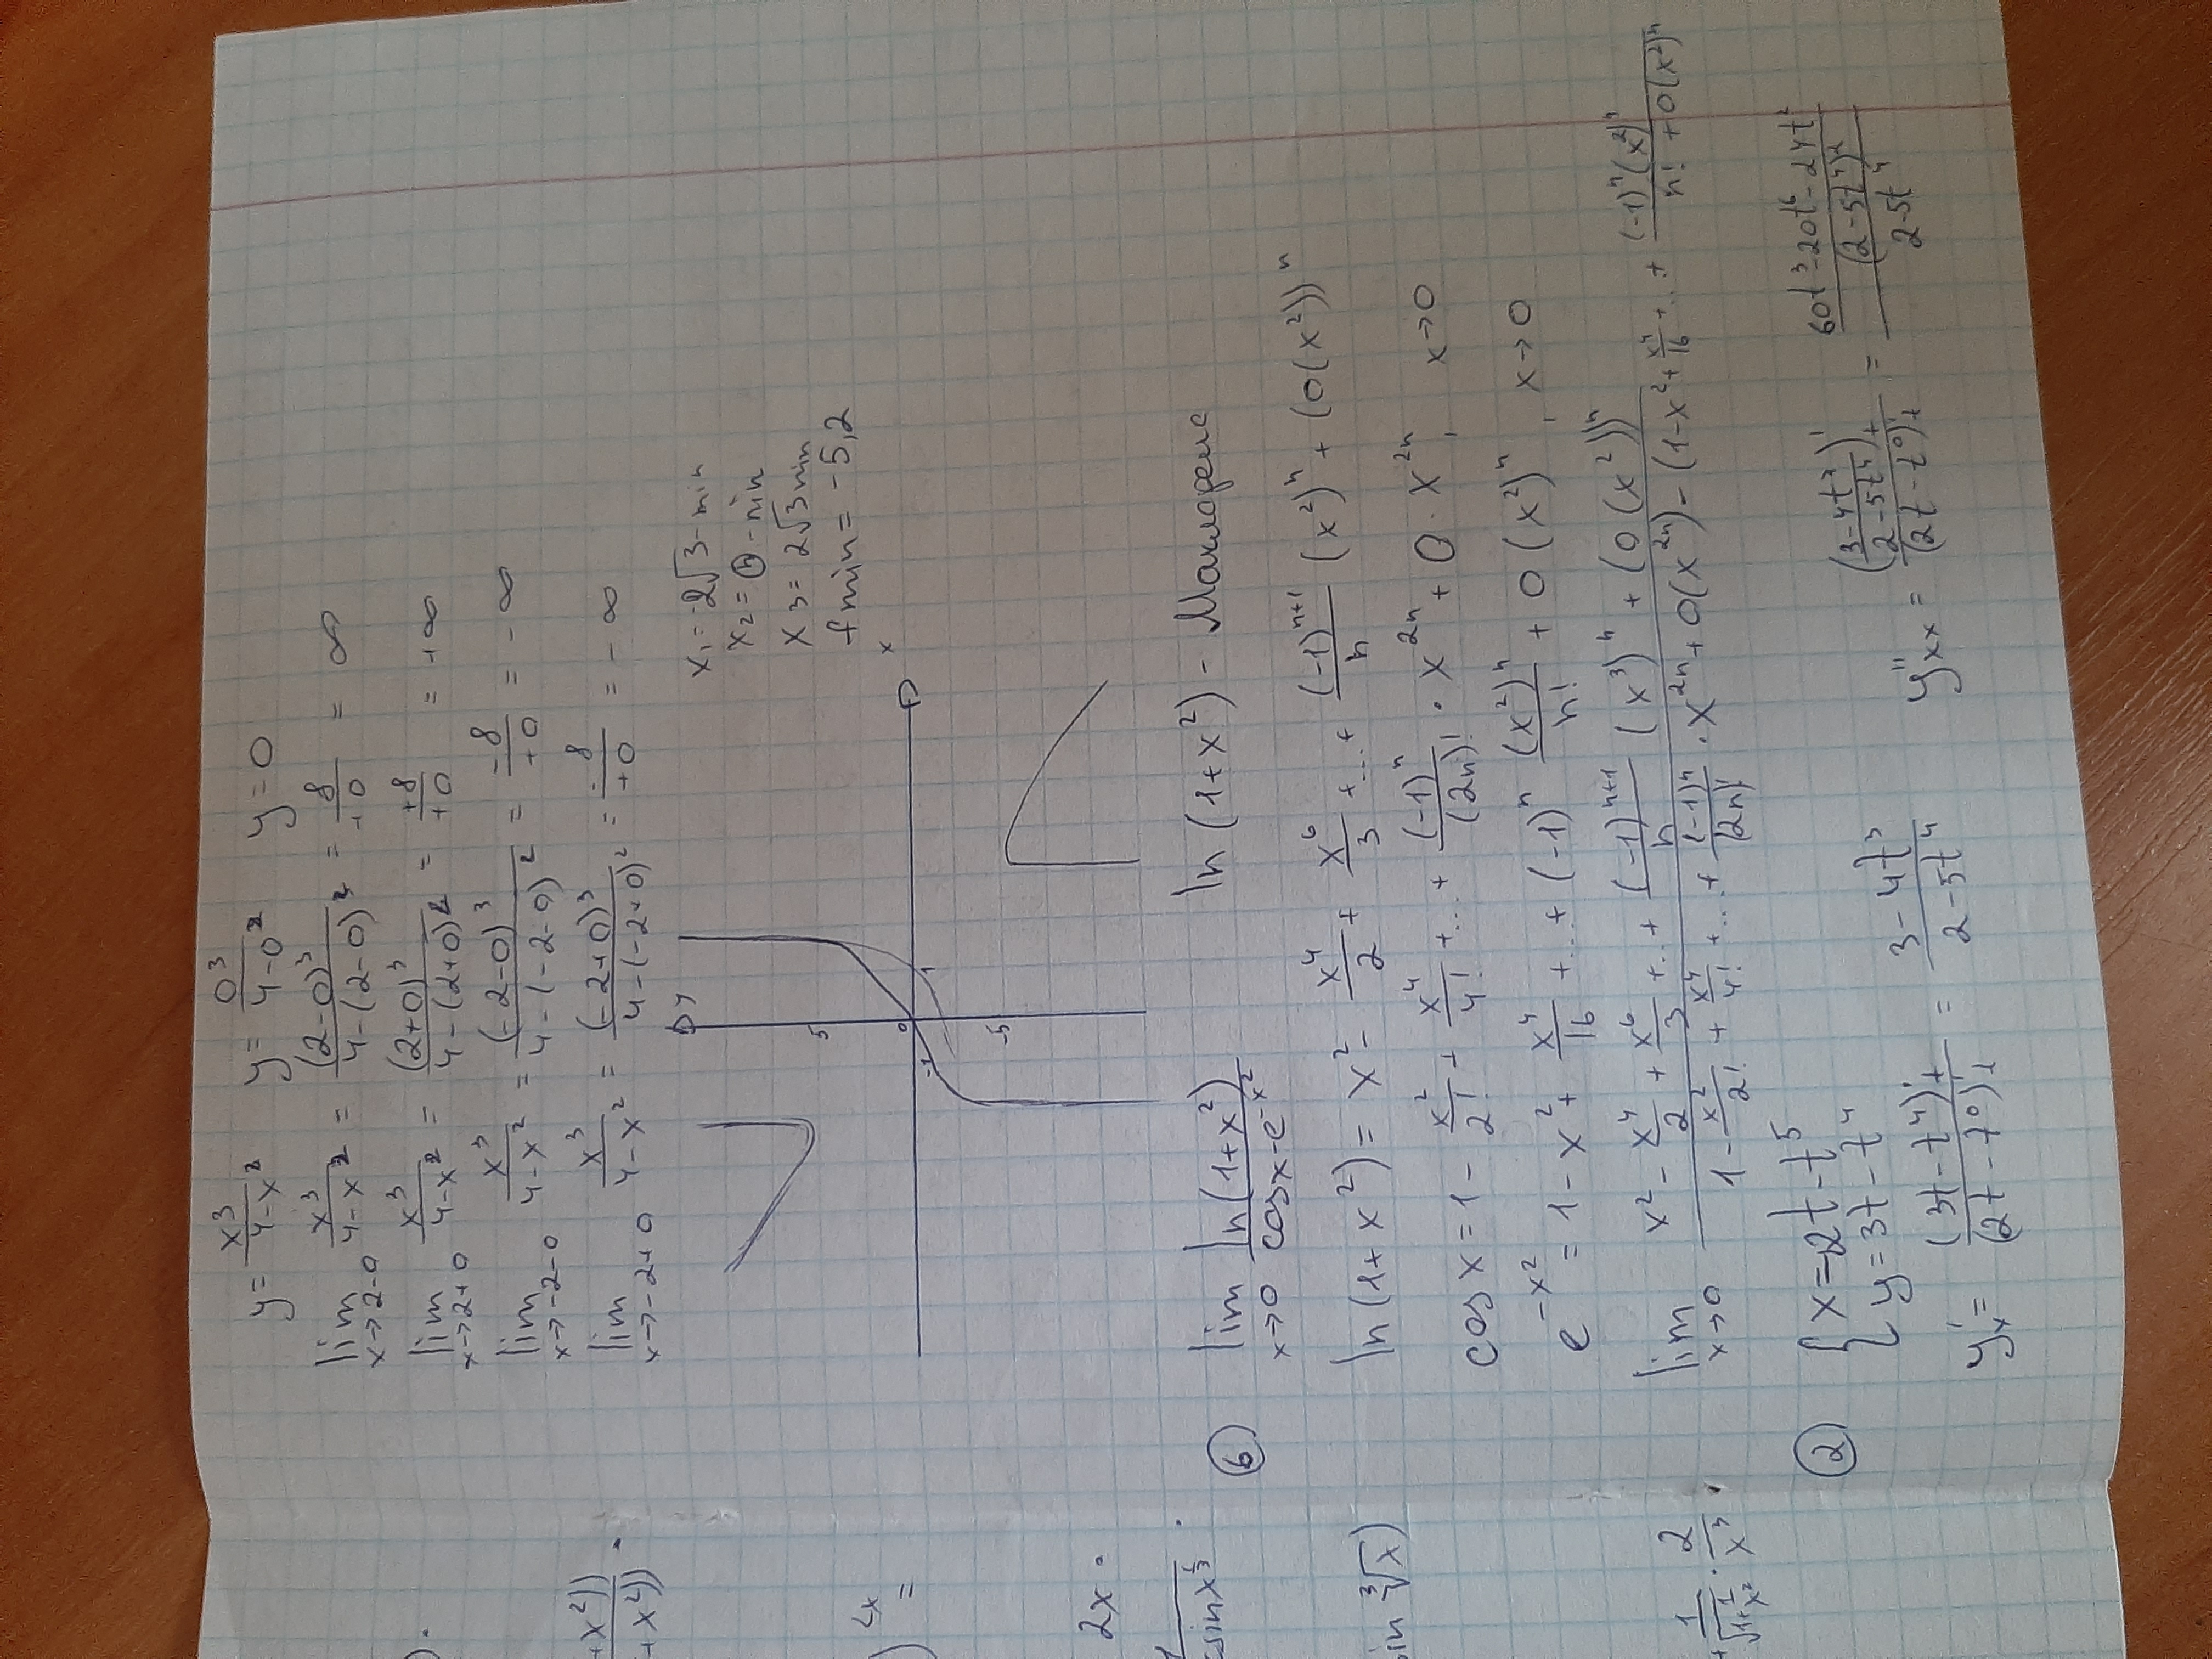 y = x³/(4-x²)   y = 0³/(4-0²)   y = 0
lim x→2-0 x³/(4-x²) = (2-0)³/(4-(2-0)²) = 8/+0 = ∞
lim x→2+0 x³/(4-x²) = (2+0)³/(4-(2+0)²) = +8/+0 = +∞
lim x→-2-0 x³/(4-x²) = (-2-0)³/(4-(-2-0)²) = -8/+0 = -∞
lim x→-2+0 x³/(4-x²) = (-2+0)³/(4-(-2+0)²) = -8/+0 = -∞
y
x₁ = -2√3 - min
x₂ = - min
x 3 = 2√3 min
f min = -5,2
x
5
0
-1 1
-5
+x²))
+x²))
2x
=
2x ·
1
sinx
in ∛x)
1/√(1+1/x²) · 2/x³
⑥ lim x→0 ln(1+x²)/(cosx-e^(-x²))   ln(1+x²) - Маклорена
ln(1+x²) = x² - x⁴/2 + x⁶/3 + ... + (-1)ⁿ⁺¹/n (x²)ⁿ + (0(x²))ⁿ
cos x = 1 - x²/2! + x⁴/4! + ... + (-1)ⁿ/(2n)! · x²ⁿ + 0 · x²ⁿ, x→0
e^(-x²) = 1 - x² + x⁴/16 + ... + (-1)ⁿ (x²)ⁿ/n! + 0(x²)ⁿ, x→0
lim x→0 (x² - x⁴/2 + x⁶/3 + ... + (-1)ⁿ⁺¹/n (x³)ⁿ + (0(x²))ⁿ)/(1 - x²/2! + x⁴/4! + ... + (-1)ⁿ/(2n)! · x²ⁿ + 0(x²ⁿ) - (1-x²+x⁴/16 + ... + (-1)ⁿ(x²)ⁿ/n! + 0(x²)ⁿ
② { x = 2t - t⁵
y = 3t - t⁴
y'ₓ = (3t-t⁴)'t/(2t-t⁰)'t = (3-4t³)/(2-5t⁴)   y''ₓₓ = ((3-4t³)/(2-5t⁴))'t/(2t-t⁰)'t = ((60t³-20t⁶-24t²)/(2-5t⁴)²)/(2-5t⁴)